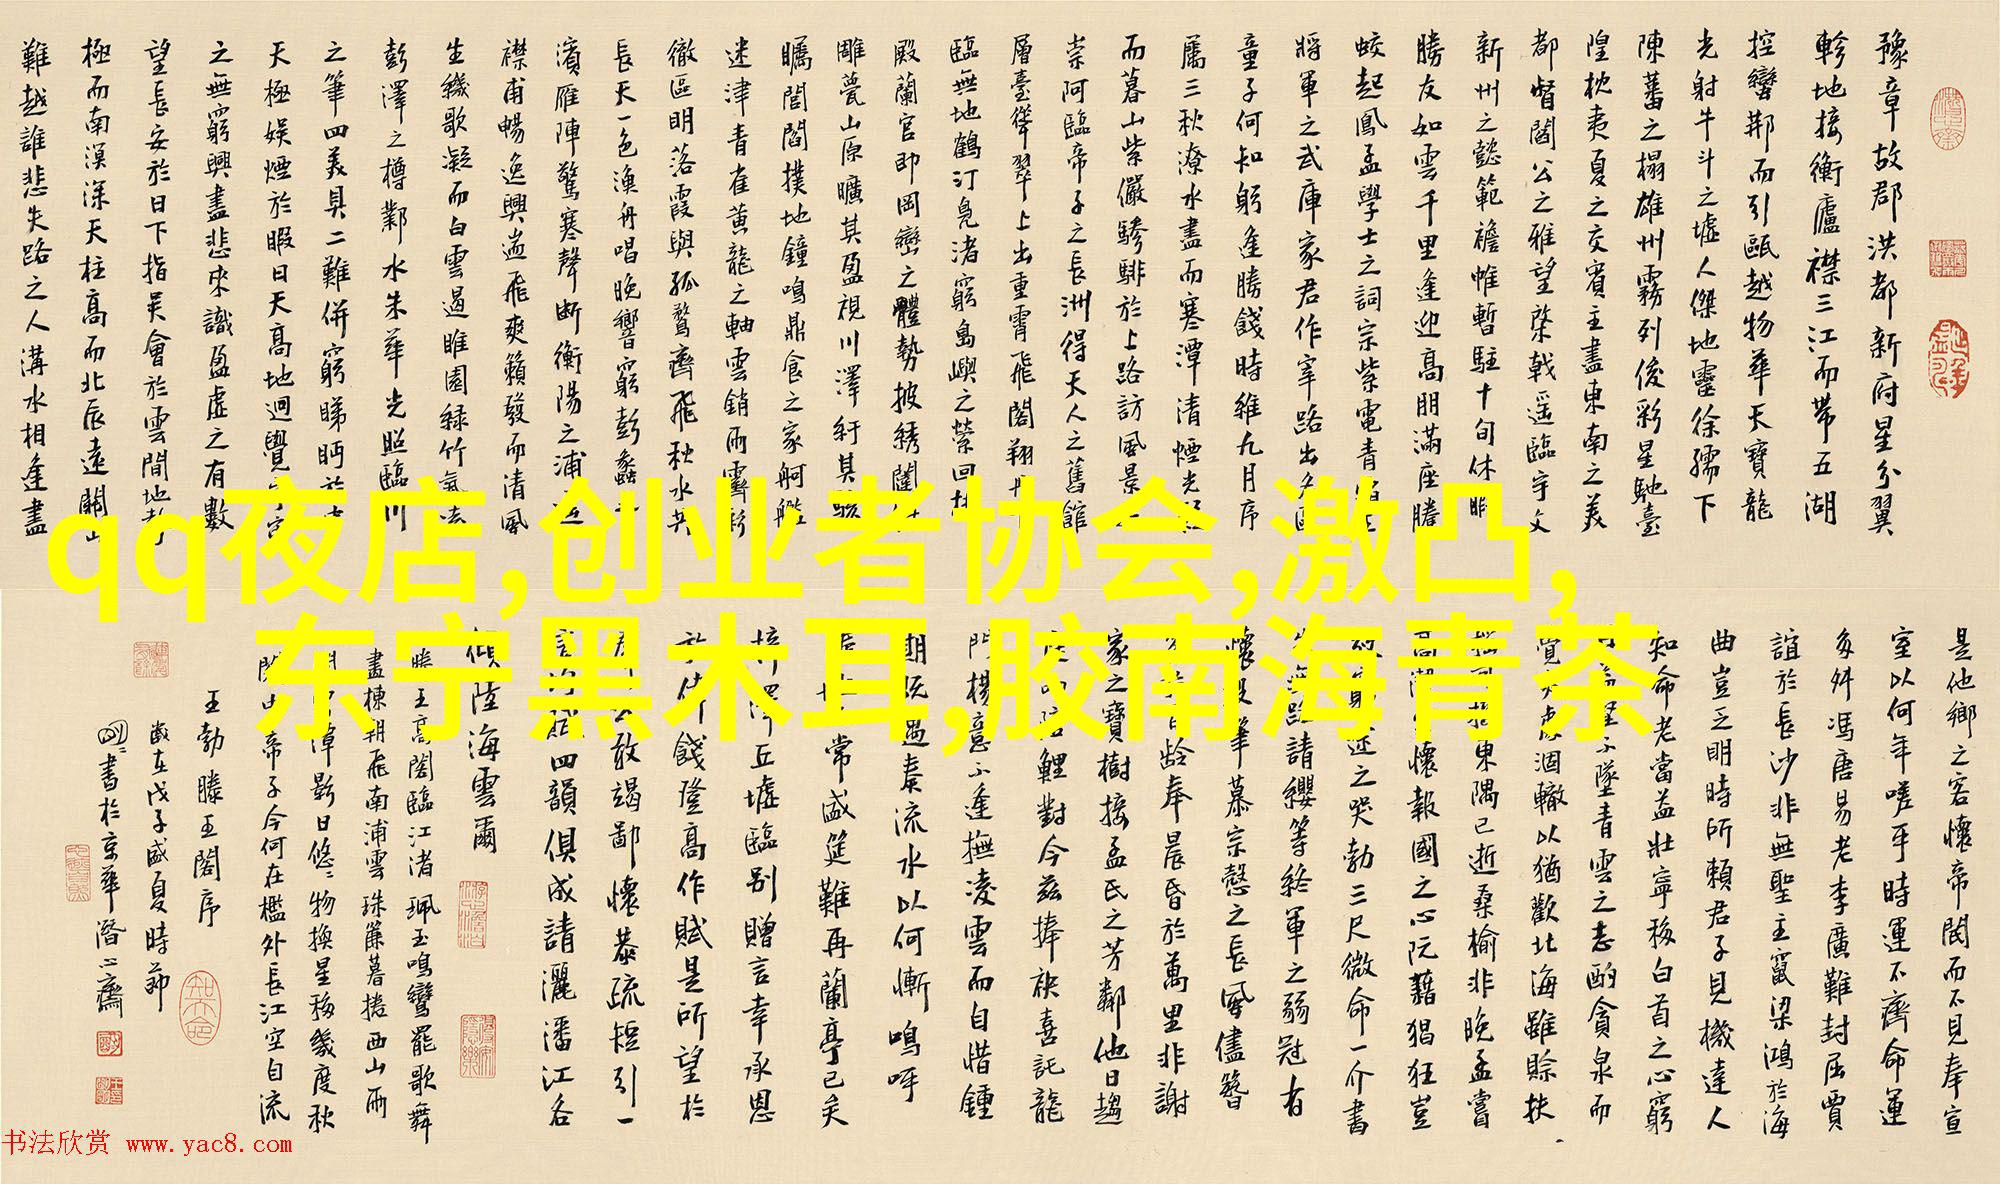 豫章故郡洪都新府星分翼
軫地接衡廬襟三江而帶五湖
控蠻荊而引甌越物華天寶龍
光射牛斗之墟人傑地靈徐孺下
陳蕃之榻雄州霧列俊彩星馳臺
隍枕夷夏之交賓主盡東南之美
都督閻公之雅望棨戟遥臨宇文
新州之懿範襜帷暫駐十旬休暇
勝友如雲千里逢迎高朋滿座騰
蛟起鳳孟學士之詞宗紫電青王
將軍之武庫家君作宰路出名區
童子何知躬逢勝餞時維九月序
屬三秋潦水盡而寒潭清煙光
而暮山紫儼驂騑於上路訪風景
崇阿臨帝子之長洲得天人之舊館
層臺聳翠上出重霄飛閣翔
臨無地鶴汀鳧渚窮島嶼之縈回
殿蘭宮即岡巒之體勢披綉闥
雕甍山原曠其盈視川澤紆其駭
矚閭閻撲地鐘鳴鼎食之家舸艦
迷津青雀黃龍之軸雲銷雨霽彩
徹區明落霞與孤鶩齊飛秋水共
長天一色漁舟唱晚響窮彭蠡
濱雁陣驚寒聲斷衡陽之浦
襟甫暢逸興遄飛爽籟發而清風
生纖歌凝而白雲遏睢園緑竹氣凌
彭澤之樽鄴水朱華光照臨川
之筆四美具二難併窮睇眄於
天極娛遊於暇日天高地迥覺
之無窮興盡悲來識盈虛之有數
望長安於日下指吳會於雲間地
極而南溟深天柱高而北辰遠關山
難越誰悲失路之人溝水相逢盡
qq夜店,创业者协会,激凸,
东宁黑木耳,胶南海青茶
是他鄉之客懷帝閽而不見奉宣
室以何年嗟乎時運不齊命運
多舛馮唐易老李廣難封屈賈
誼於長沙非無聖主竄梁鴻於海
曲豈乏明時所賴君子見機達人
知命老當益壯寧移白首之心窮
益堅不墜青雲之志酌貪泉而
覺爽處涸轍以猶歡北海雖賒扶
搖可接東隅已逝桑榆非晚孟嘗
高潔懷報國之心阮藉猖狂豈
途之哭勃三尺微命一介書
生無路請纓等終軍之弱冠有
懷投筆慕宗愨之長風儘簪
齡奉晨昏於萬里非謝
家之寶樹接孟氏之芳鄰他日趨
庭叨陪鯉對今茲捧袂喜託龍
門楊意不逢撫凌雲而自惜鍾
期既遇奏流水以何慚嗚呼
常盛筵難再蘭亭已矣
梓澤丘墟臨別贈言幸承恩
於偉餞登高作賦是所望於
群公敢竭鄙懷恭疏短引一
言均賦四韻俱成請灑潘江各
傾陸海雲爾
滕王高閣臨江渚珮玉鳴鸞罷歌舞
畫棟朝飛南浦雲珠簾暮捲西山雨
閒雲潭影日悠悠物換星移幾度秋
閣中帝子今何在檻外長江空自流
王勃滕王閣序
歲在戊子盛夏時節
書於京華潛心齋
书法欣赏 www.yac8.com